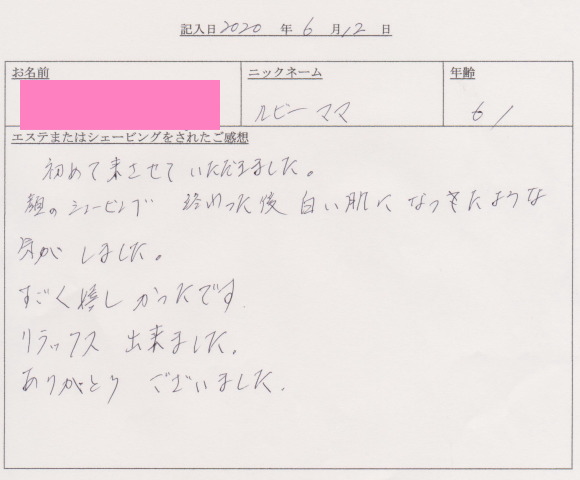 記入日2020 年 6 月12 日
お名前 ニックネーム 年齢
ルビーママ 61
エステまたはシェービングをされたご感想
初めて来させていただきました。
顔のシェービング 終わった後 白い肌になってきたような
気が しました。
すごく嬉しかったです.
リラックス 出来ました.
ありがとう ございました.